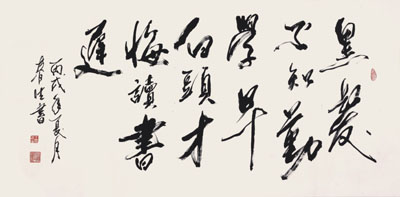 黑髮
不知勤
學早
白頭才
悔讀書
遲
丙戌年夏月
書